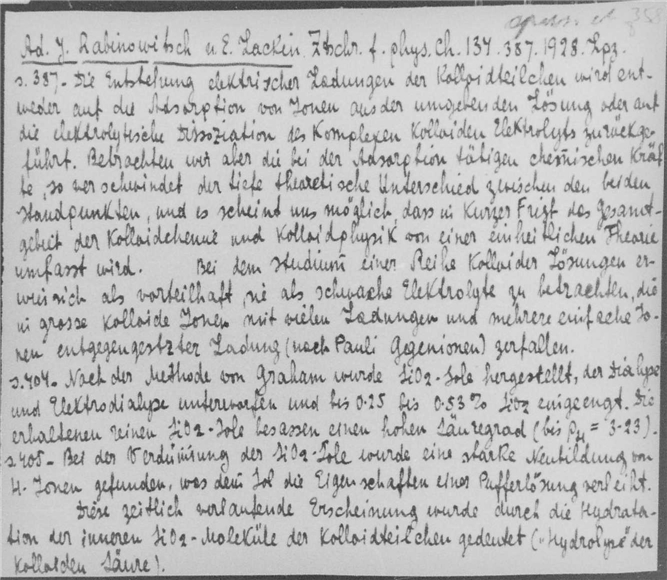 Ad. J. Rabinowitsch u. E. Lackin, Ztschr. f. phys. ch. 134. 387. 1928. Lpz.
s. 387- Die Entstehung elektrischer Ladungen der Kolloidteilchen wird ent-
weder auf die Adsorption von Jonen aus der umgebenden Lösung oder auf
die elektrolytische Dissoziation des Komplexen Kolloiden Elektrolyts zurückge-
führt. Betrachten wir aber die bei der Adsorption tätigen chemischen Kräf-
te, so verschwindet der tiefe theoretische Unterschied zwischen den beiden
Standpunkten, und es scheint uns möglich, dass in Kurzer Frist das Gesamt-
gebiet der Kolloidchemie und Kolloidphysik von einer einheitlichen Theorie
umfasst wird. Bei dem Studium einer Reihe Kolloider Lösungen er-
wies sich als vorteilhaft, sie als schwache Elektrolyte zu betrachten, die
in grosse Kolloide Jonen mit vielen Ladungen und mehrere einfache Jo-
nen entgegengestzter Ladung (nach Pauli Gegenionen) zerfallen.
s. 404- Nach der Methode von Graham wurde SiO2-Sole hergestellt, der Dialyse
und Elektrodialyse unterworfen und bis 0.25 bis 0.53% SiO2 eingeengt. Die
erhaltenen reinen SiO2-Sole besassen einen hohen Säuregrad (bis pH = 3-23).
s. 405- Bei der Verdünnung der SiO2-Sole wurde eine starke Neubildung von
H-Jonen gefunden, was dem Sol die Eigenschaften einer Pufferlösung verleiht.
Diese zeitlich verlaufende Erscheinung wurde durch die Hydrata-
tion der inneren SiO2-Moleküle der Kolloidteilchen gedeutet („Hydrolyse" der
Kolloiden Säure).